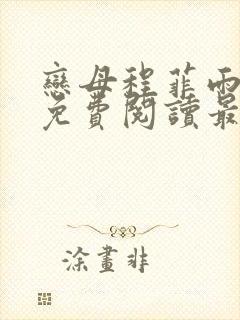 戀母程菲雨
免費閱讀最
涂畫非